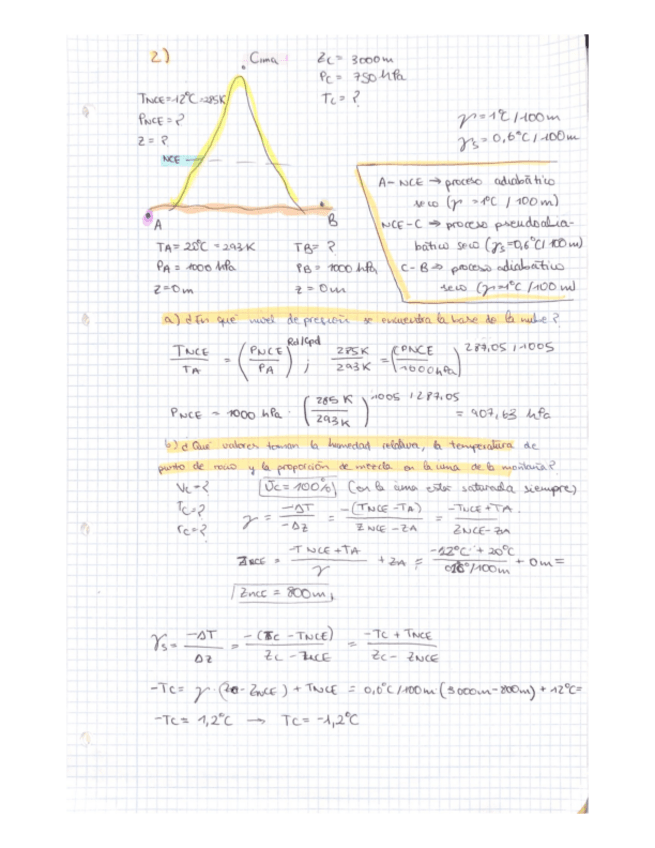 2)
Cima
Zc = 3000m
Pc = 750 hPa
Tc = ?
TNCE = 12ºC = 285K
PNCE = ?
Z = ?
NCE
γ = 1ºC / 100m
γs = 0,6ºC / 100m
A - NCE → proceso adiabático
seco (γ = 1ºC / 100m)
NCE-C → proceso pseudoadia-
bático seco (γs = 0,6ºC/100m)
C - B → proceso adiabático
seco (γ = 1ºC / 100 m)
A
B
TA = 20ºC = 293K
PA = 1000 hPa
z = 0m
TB = ?
PB = 1000 hPa
z = 0m
a) ¿En qué nivel de presión se encuentra la base de la nube?
TNCE / TA = (PNCE / PA)^Rd/Cpd ; 285K / 293K = (PNCE / 1000hPa)^287,05 / 1005
PNCE = 1000 hPa · (285 K / 293K)^1005 / 287,05 = 907,63 hPa
b) ¿Qué valores toman la humedad relativa, la temperatura de
punto de rocío y la proporción de mezcla en la cima de la montaña?
Uc = ? Uc = 100% (en la cima estar saturada siempre)
Tc = ?
rc = ?
γ = -ΔT / -Δz = -(TNCE - TA) / ZNCE - ZA = -TNCE + TA / ZNCE - ZA
ZNCE = -TNCE + TA / γ + ZA = -12ºC + 20ºC / /100m + 0m =
ZNCE = 800m
γs = -ΔT / Δz = -(Tc - TNCE) / Zc - ZNCE = -Tc + TNCE / Zc - ZNCE
-Tc = γ · (Zc - ZNCE) + TNCE = 0,6ºC/100m (3000m - 800m) + 12ºC =
-Tc = 1,2ºC → Tc = -1,2ºC